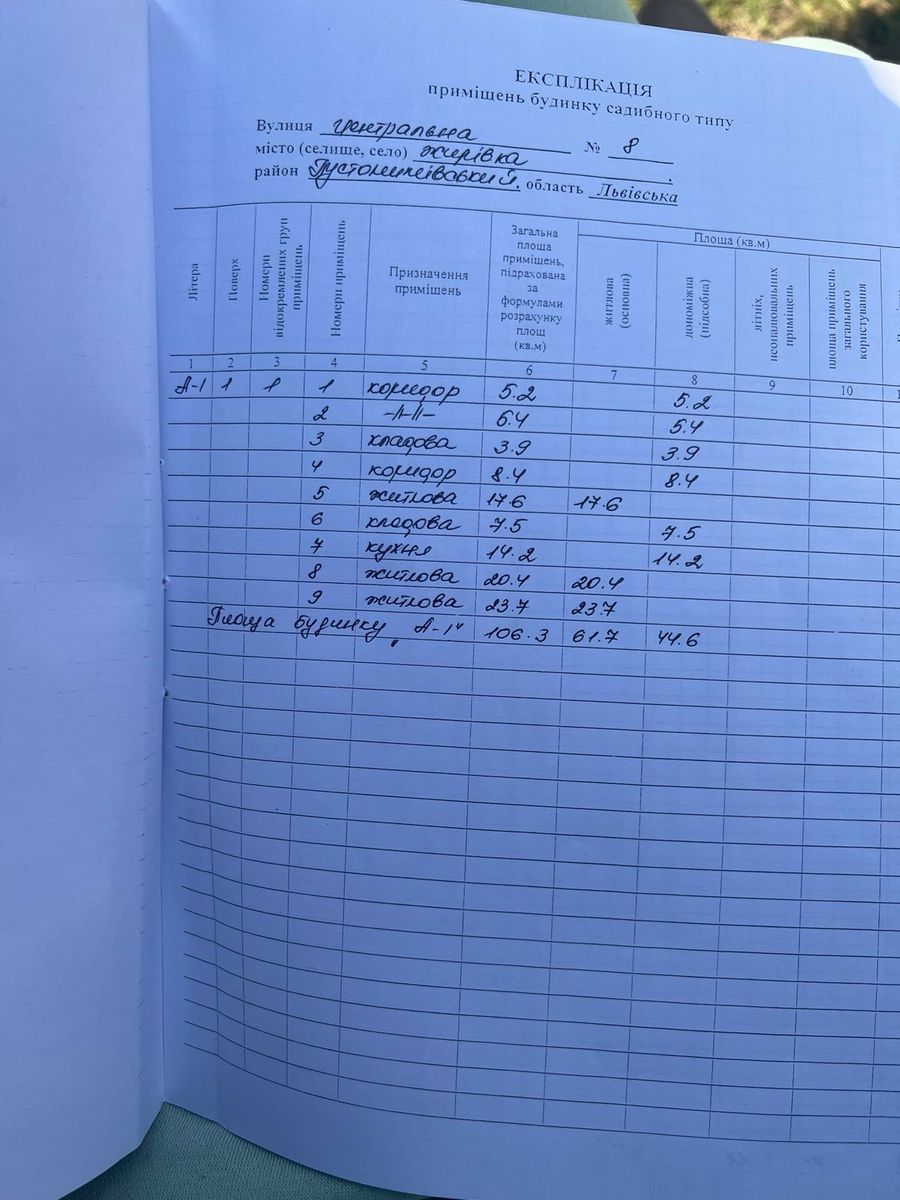 ЕКСПЛІКАЦІЯ
приміщень будинку садибного типу
Вулиця центральна № 8
місто (селище, село) жирівка.
район Пустомитівський, область Львівська
Літера
Поверх
Номери відокремлених груп приміщень
Номери приміщень
Призначення приміщень
Загальна площа приміщень, підрахована за формулами розрахунку площ (кв.м)
Площа (кв.м)
житлова (основна)
допоміжна (підсобна)
літніх, неопалювальних приміщень
площа приміщень загального користування
1 2 3 4 5 6 7 8 9 10
А-1 1 1 1 коридор 5.2 5.2
2 -||-||- 5.4 5.4
3 кладова 3.9 3.9
4 коридор 8.4 8.4
5 житлова 17.6 17.6
6 кладова 7.5 7.5
7 кухня 14.2 14.2
8 житлова 20.4 20.4
9 житлова 23.7 23.7
Площа будинку „А-1" 106.3 61.7 44.6